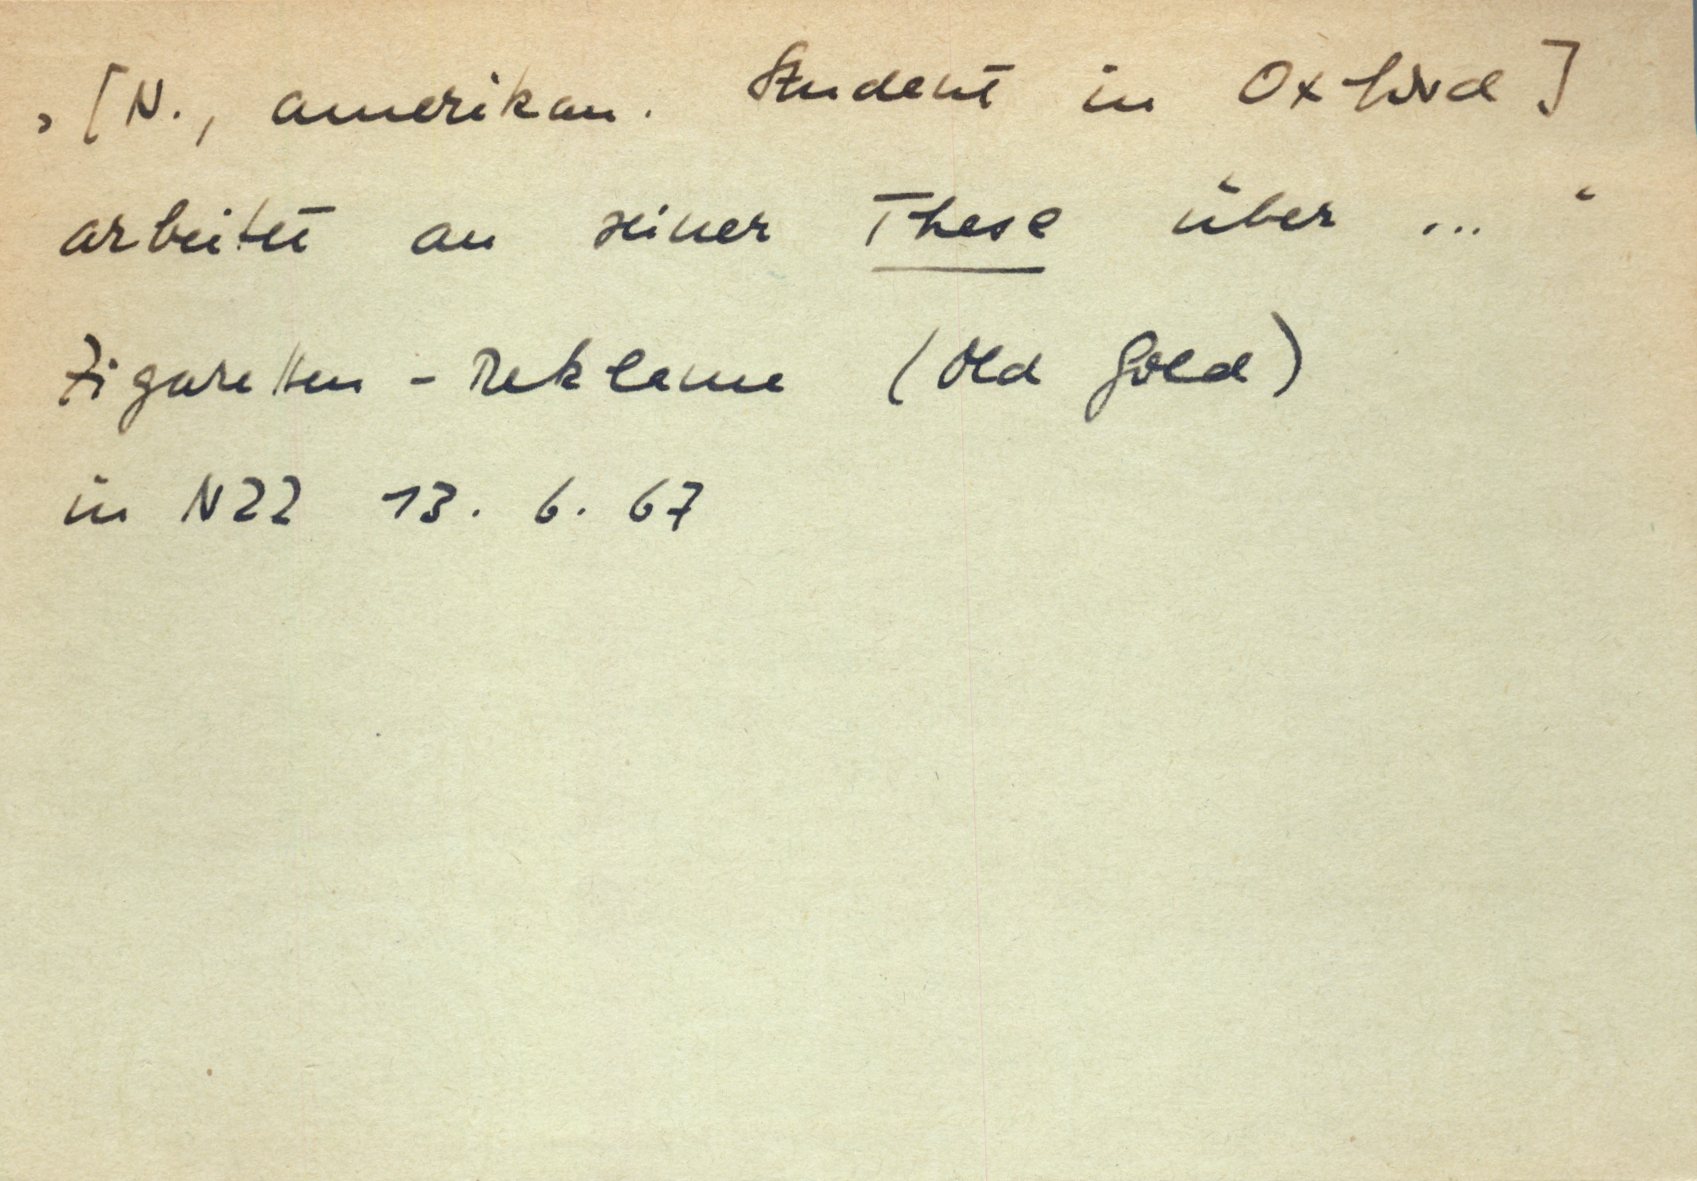 „[N., amerikan. Student in Oxford]
arbeitet an seiner These über ..."
Zigaretten-Reklame (Old Gold)
in NZZ 13. 6. 67